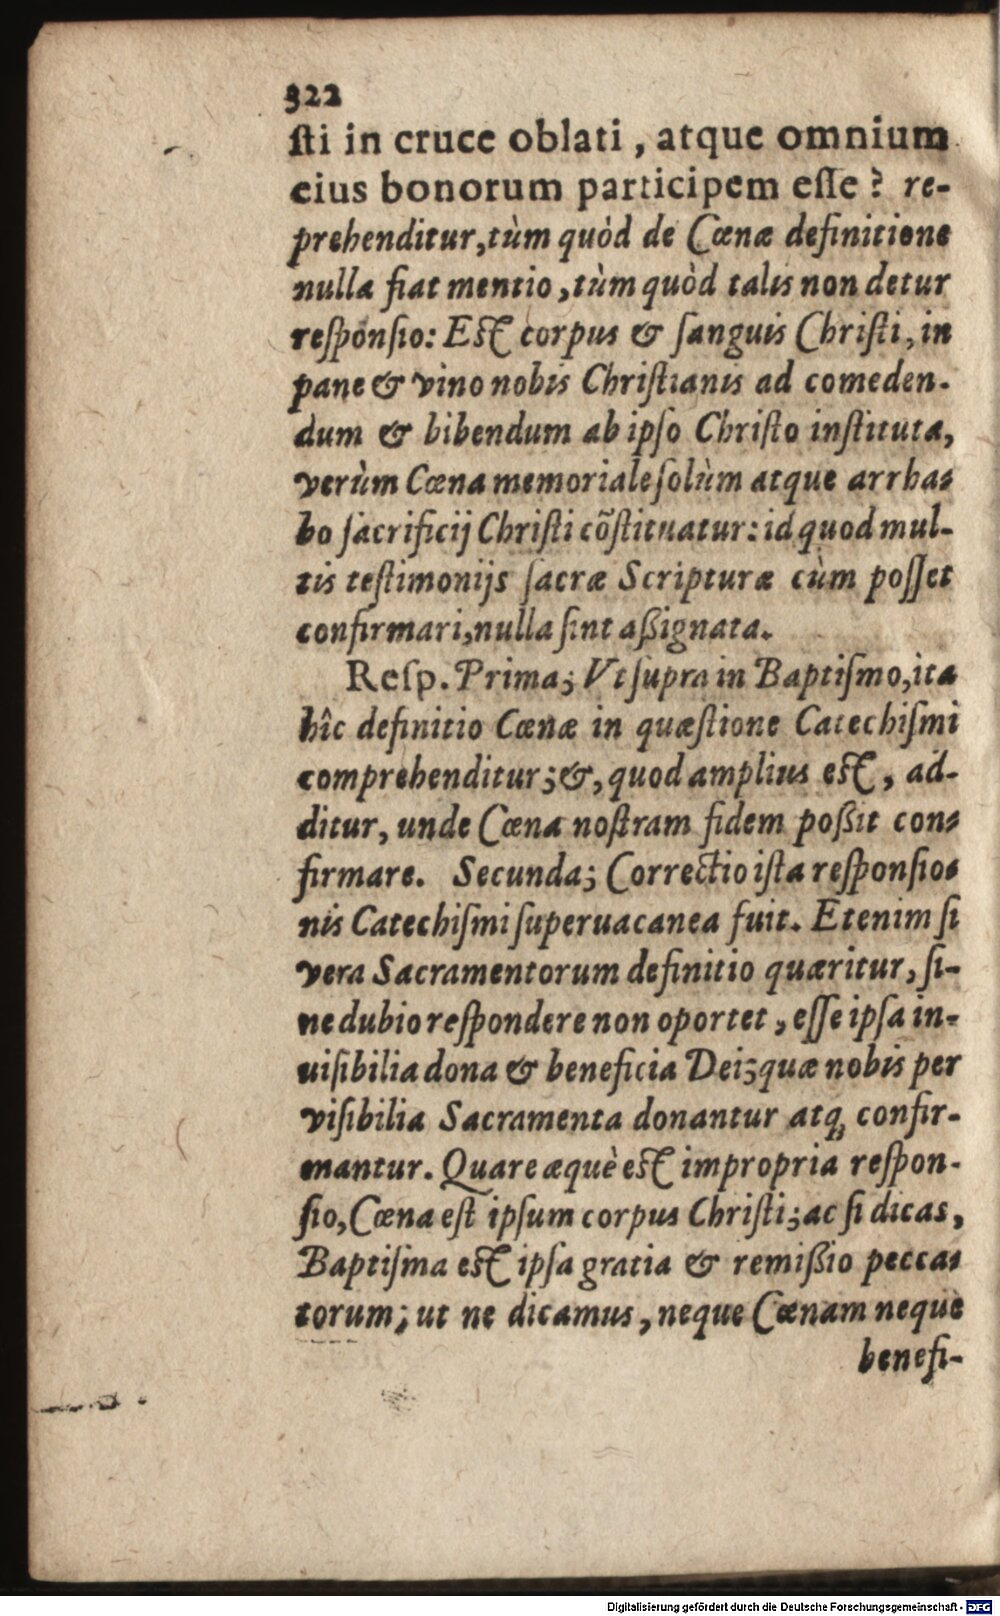 322
ſti in cruce oblati, atque omnium
eius bonorum participem eſſe? re-
prehenditur, tùm quòd de Cœnæ definitione
nulla fiat mentio, tùm quòd talis non detur
reſponſio: Eſt corpus & ſanguis Chriſti, in
pane & vino nobis Chriſtianis ad comeden-
dum & bibendum ab ipſo Chriſto inſtituta,
verùm Cœna memoriale ſolùm atque arrha-
bo ſacrificij Chriſti cõſtituatur: id quod mul-
tis teſtimonijs ſacræ Scripturæ cùm poſſet
confirmari, nulla ſint aßignata.
Reſp. Prima; Vt ſupra in Baptiſmo, ita
hîc definitio Cœnæ in quæſtione Catechiſmi
comprehenditur; &, quod amplius eſt, ad-
ditur, unde Cœna noſtram fidem poßit con-
firmare. Secunda; Correctio iſta reſponſio-
nis Catechiſmi ſuperuacanea fuit. Etenim ſi
vera Sacramentorum definitio quæritur, ſi-
ne dubio reſpondere non oportet, eſſe ipſa in-
uiſibilia dona & beneficia Dei; quæ nobis per
viſibilia Sacramenta donantur atq; confir-
mantur. Quare æquè eſt impropria reſpon-
ſio, Cœna eſt ipſum corpus Chriſti; ac ſi dicas,
Baptiſma eſt ipſa gratia & remißio pecca-
torum; ut ne dicamus, neque Cœnam neque
benefi-
Digitalisierung gefördert durch die Deutsche Forschungsgemeinschaft - DFG